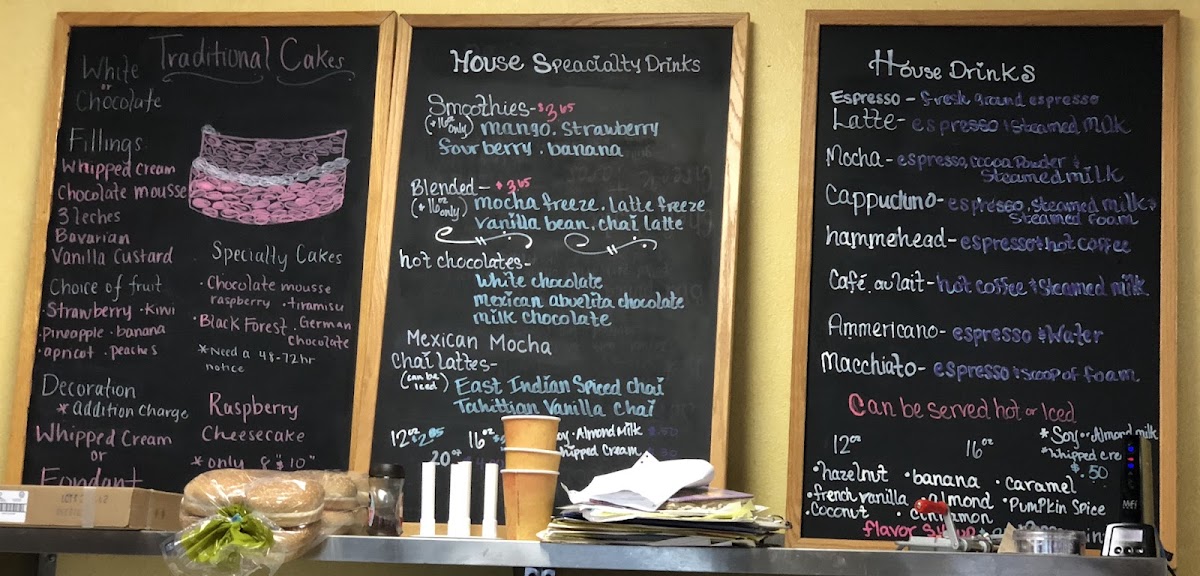 Traditional Cakes
White
or
Chocolate
Fillings
Whipped Cream
Chocolate mousse
3 leches
Bavarian
Vanilla Custard
Choice of fruit
·Strawberry ·Kiwi
·pineapple ·banana
·apricot ·peaches
Decoration
*Addition Charge
Whipped Cream
or
Fondant
Specialty Cakes
·Chocolate mousse
raspberry ·tiramisu
·Black Forest ·German
chocolate
*Need a 48-72hr
notice
Raspberry
Cheesecake
*only 8"$10"
House Speacialty Drinks
Smoothies-$3.65
(*16oz only) mango. strawberry
fourberry . banana
Blended-$3.65
(*16oz only) mocha freeze. latte freeze
vanilla bean. chai latte
hot chocolates-
White chocolate
mexican abuelita chocolate
milk chocolate
Mexican Mocha
Chai lattes-
(can be iced) East Indian Spiced chai
Tahittian Vanilla Chai
12oz $2.85 16oz
Almond Milk .50
20oz
Whipped Cream
House Drinks
Espresso - fresh ground espresso
Latte- espresso & steamed milk
Mocha- espresso, cocoa powder &
steamed milk
Cappucino- espresso, steamed milk &
steamed foam
hammehead- espresso & hot coffee
Café. au lait- hot coffee & steamed milk
Ammericano- espresso & water
Macchiato- espresso & scoop of foam
Can be served hot or Iced
12oz 16oz
*Soy or Almond milk
*Whipped cre
$.50
·hazelnut ·banana ·caramel
·french vanilla ·almond ·Pumpkin Spice
·Coconut ·cinnamon
flavor